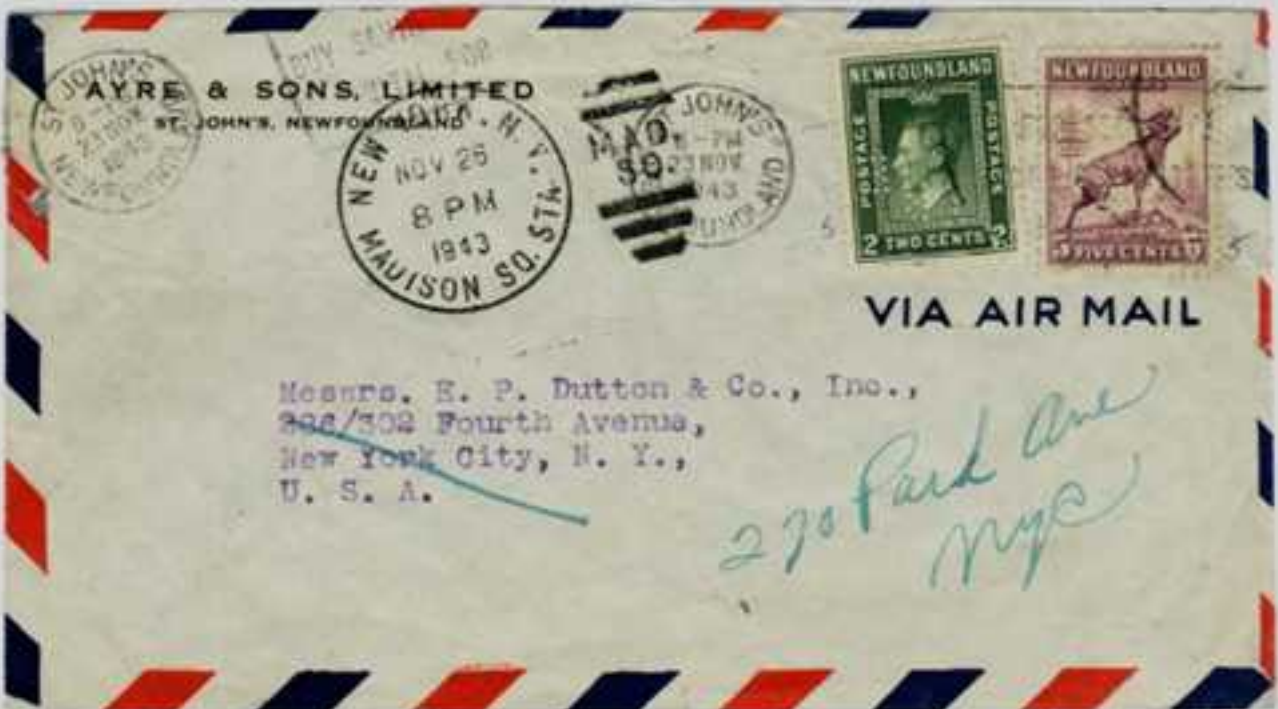 BUY
FOR
ST. JOHN'S
23 NOV
1943
AYRE & SONS, LIMITED
ST. JOHN'S, NEWFOUNDLAND
NEW YORK, N. Y.
NOV 26
8 PM
1943
MADISON SQ. STA.
MAD.
SQ.
ST JOHN'S
PM
23 NOV
1943
NEWFOUNDLAND
POSTAGE
POSTAGE
2 TWO CENTS 2
NEWFOUNDLAND
5 FIVE CENTS 5
VIA AIR MAIL
Messrs. E. P. Dutton & Co., Inc.,
Fourth Avenue,
New York City, N. Y.,
U. S. A.
270 Park Ave
NYC